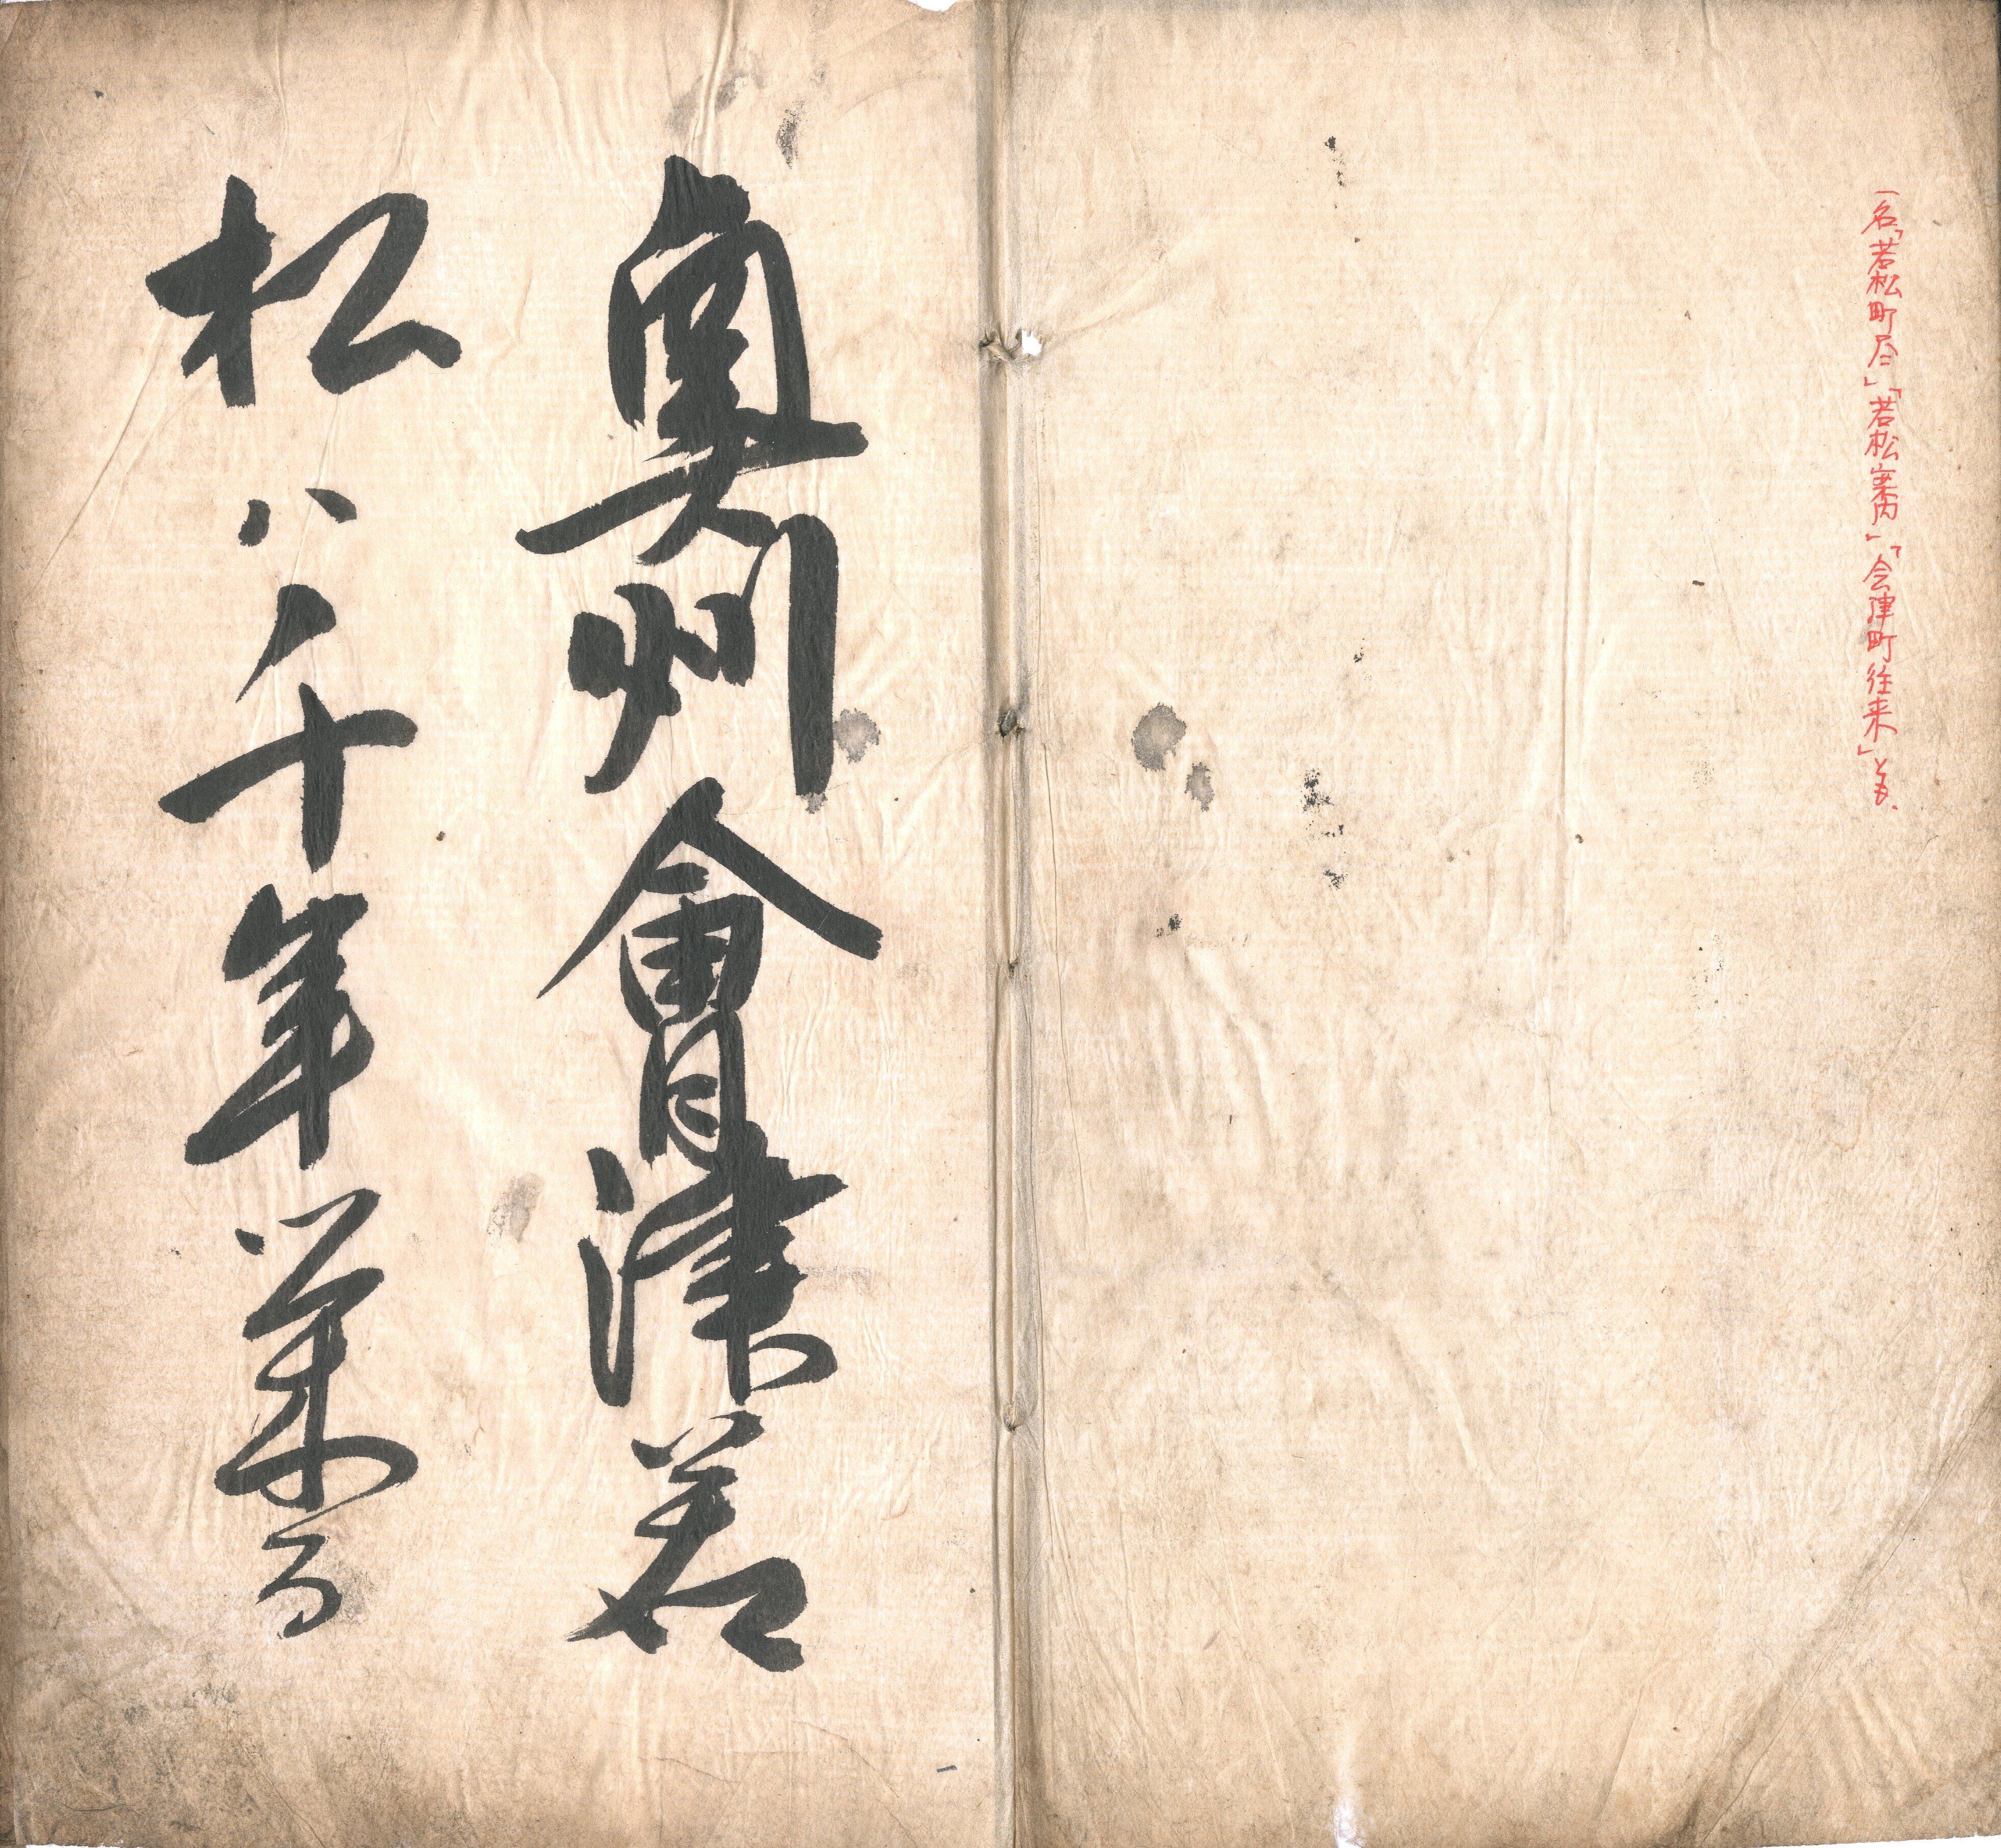 一名、「若松町尽」「若松案内」「会津町往来」とも、
奥州會津若
松ハ千年萬